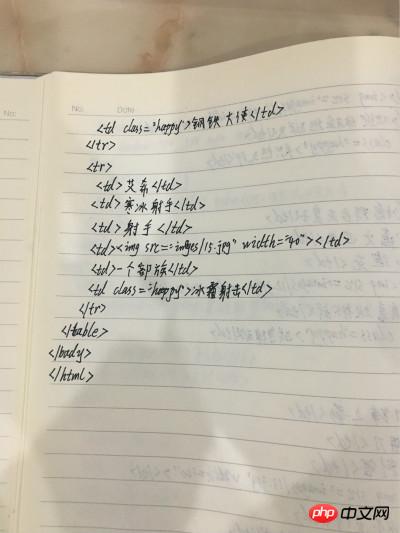 No:
No:
Date
<td class="happy">钢铁大使</td>
</tr>
<tr>
<td>艾希</td>
<td>寒冰射手</td>
<td>射手</td>
<td><img src="images/15.jpg" width="40"></td>
<td>一个部族</td>
<td class="happy">冰霜射击</td>
</tr>
</table>
</body>
</html>
php 中文网